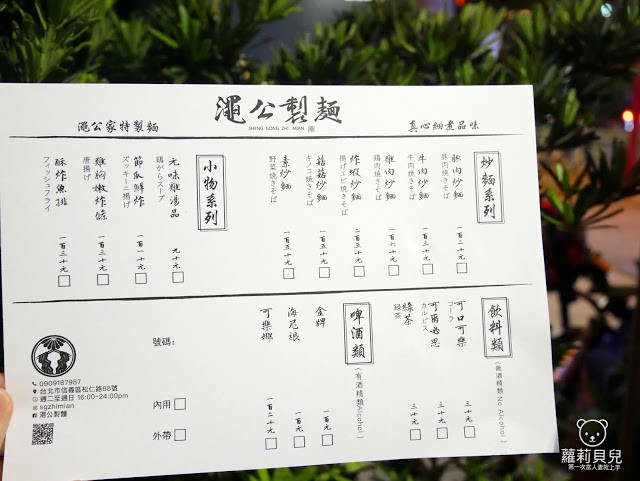 澠公製麵
SHENG GONG ZHI MIAN
澠公家特製麵
真心細煮品味
炒麵系列
豚肉炒麵
豚肉焼きそば
一百二十元
牛肉炒麵
牛肉焼きそば
一百三十元
雞肉炒麵
鶏肉焼きそば
一百六十元
炸蝦炒麵
揚げエビ焼きそば
二百五十元
菇菇炒麵
キノコ焼きそば
一百五十元
素炒麵
野菜焼きそば
一百五十元
小物系列
元味雞湯品
鶏がらスープ
九十元
節瓜鮮炸
ズッキーニ揚げ
一百一十元
雞胸嫩炸條
唐揚げ
一百三十元
酥炸魚排
フィッシュフライ
一百三十元
飲料類
(無酒精類 No Alcohol)
可口可樂
コーラ
三十元
可爾必思
カルピス
三十元
綠茶
緑茶
三十元
啤酒類
(有酒精類Alcohol)
金牌
一百元
海尼根
一百元
可樂娜
一百二十元
號碼:
內用
外帶
0909167987
台北市信義區松仁路88號
週二至週日 16:00~24:00pm
sgzhimian
澠公製麵
蘿莉貝兒
第一次當人妻就上手